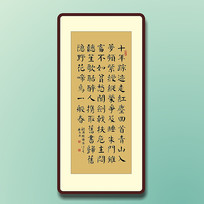 十年踪迹走紅塵回首青山入
夢頻紫綬縱榮爭及睡朱門雖
富不如貧愁聞劍戟扶危主悶
聽笙歌聒醉人携取舊書歸舊
隱野花啼鳥一般春